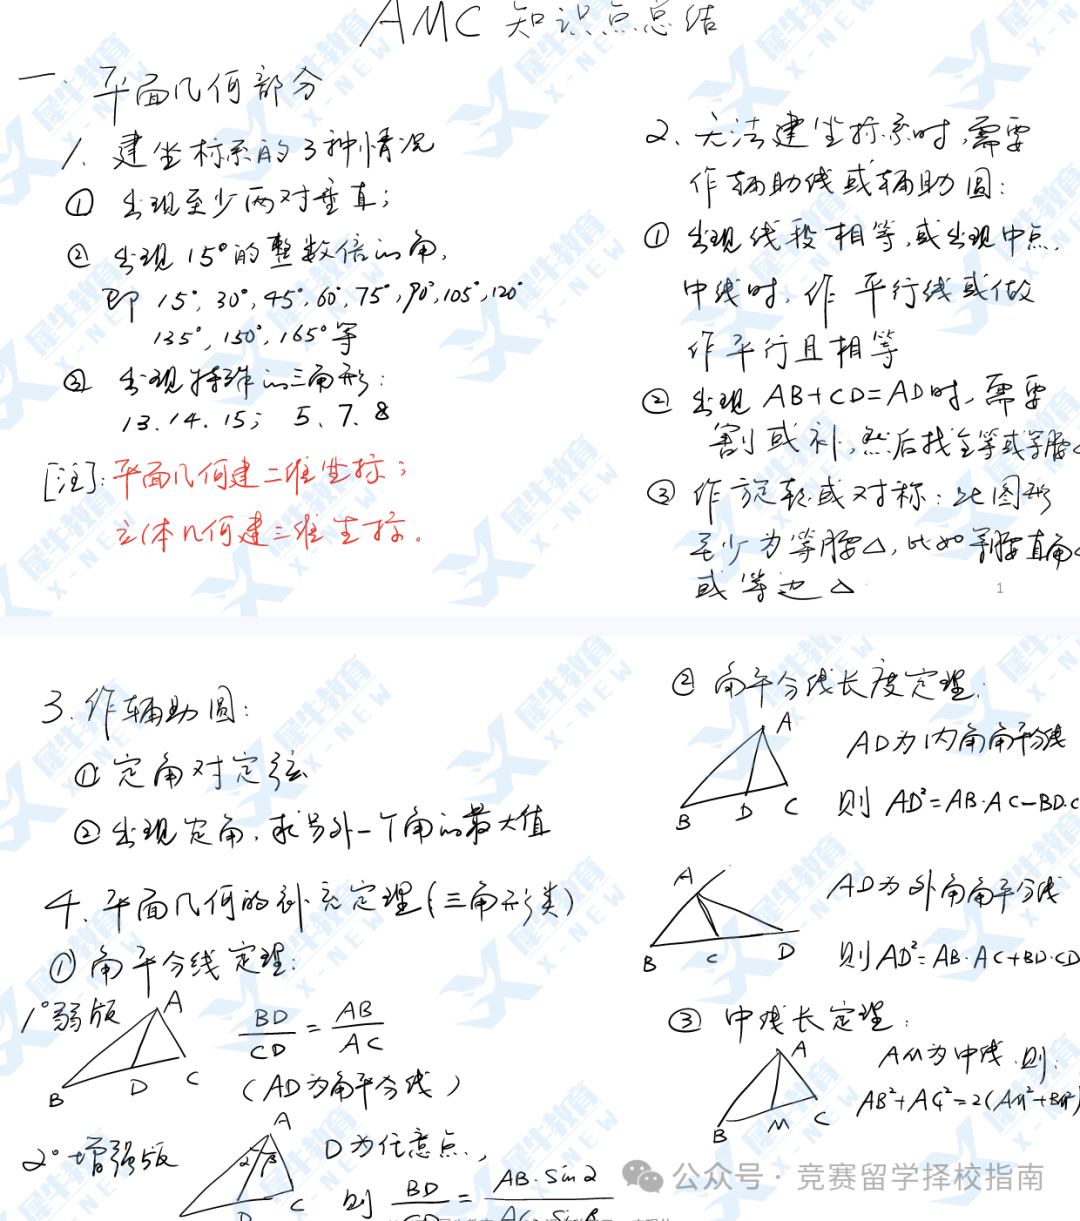 AMC 知识点总结
一. 平面几何部分
1. 建坐标系的3种情况
① 出现至少两对垂直;
② 出现15°的整数倍的角,
即 15°, 30°, 45°, 60°, 75°, 90°, 105°, 120°
135°, 150°, 165°等
③ 出现特殊的三角形:
13. 14. 15; 5. 7. 8
[注]: 平面几何建二维坐标;
立体几何建三维坐标。
2. 无法建坐标系时,需要
作辅助线或辅助圆:
① 出现线段相等,或出现中点,
中线时,作平行线或做
作平行且相等
② 出现 AB+CD=AD时,需要
割或补,然后找全等或等腰△
③ 作旋转或对称: 此图形
至少为等腰△,比如等腰直角△
或等边△
1
3. 作辅助圆:
① 定角对定弦
② 出现定角,求另外一个角的最大值
4. 平面几何的补充定理(三角形类)
① 角平分线定理:
1° 弱版
A
B D C
BD/CD = AB/AC
(AD为角平分线)
2° 增强版
A
α β
D C
D为任意点,
则 BD/CD = AB·Sinα/AC·Sinβ
② 角平分线长度定理:
A
B D C
AD为内角角平分线
则 AD²=AB·AC-BD·C
A
B C D
AD为外角角平分线
则 AD²=AB·AC+BD·CD
③ 中线长定理:
A
B M C
AM为中线,则:
AB²+AC²=2(AM²+BM²)
公众号·竞赛留学择校指南
犀牛教育
X-NEW